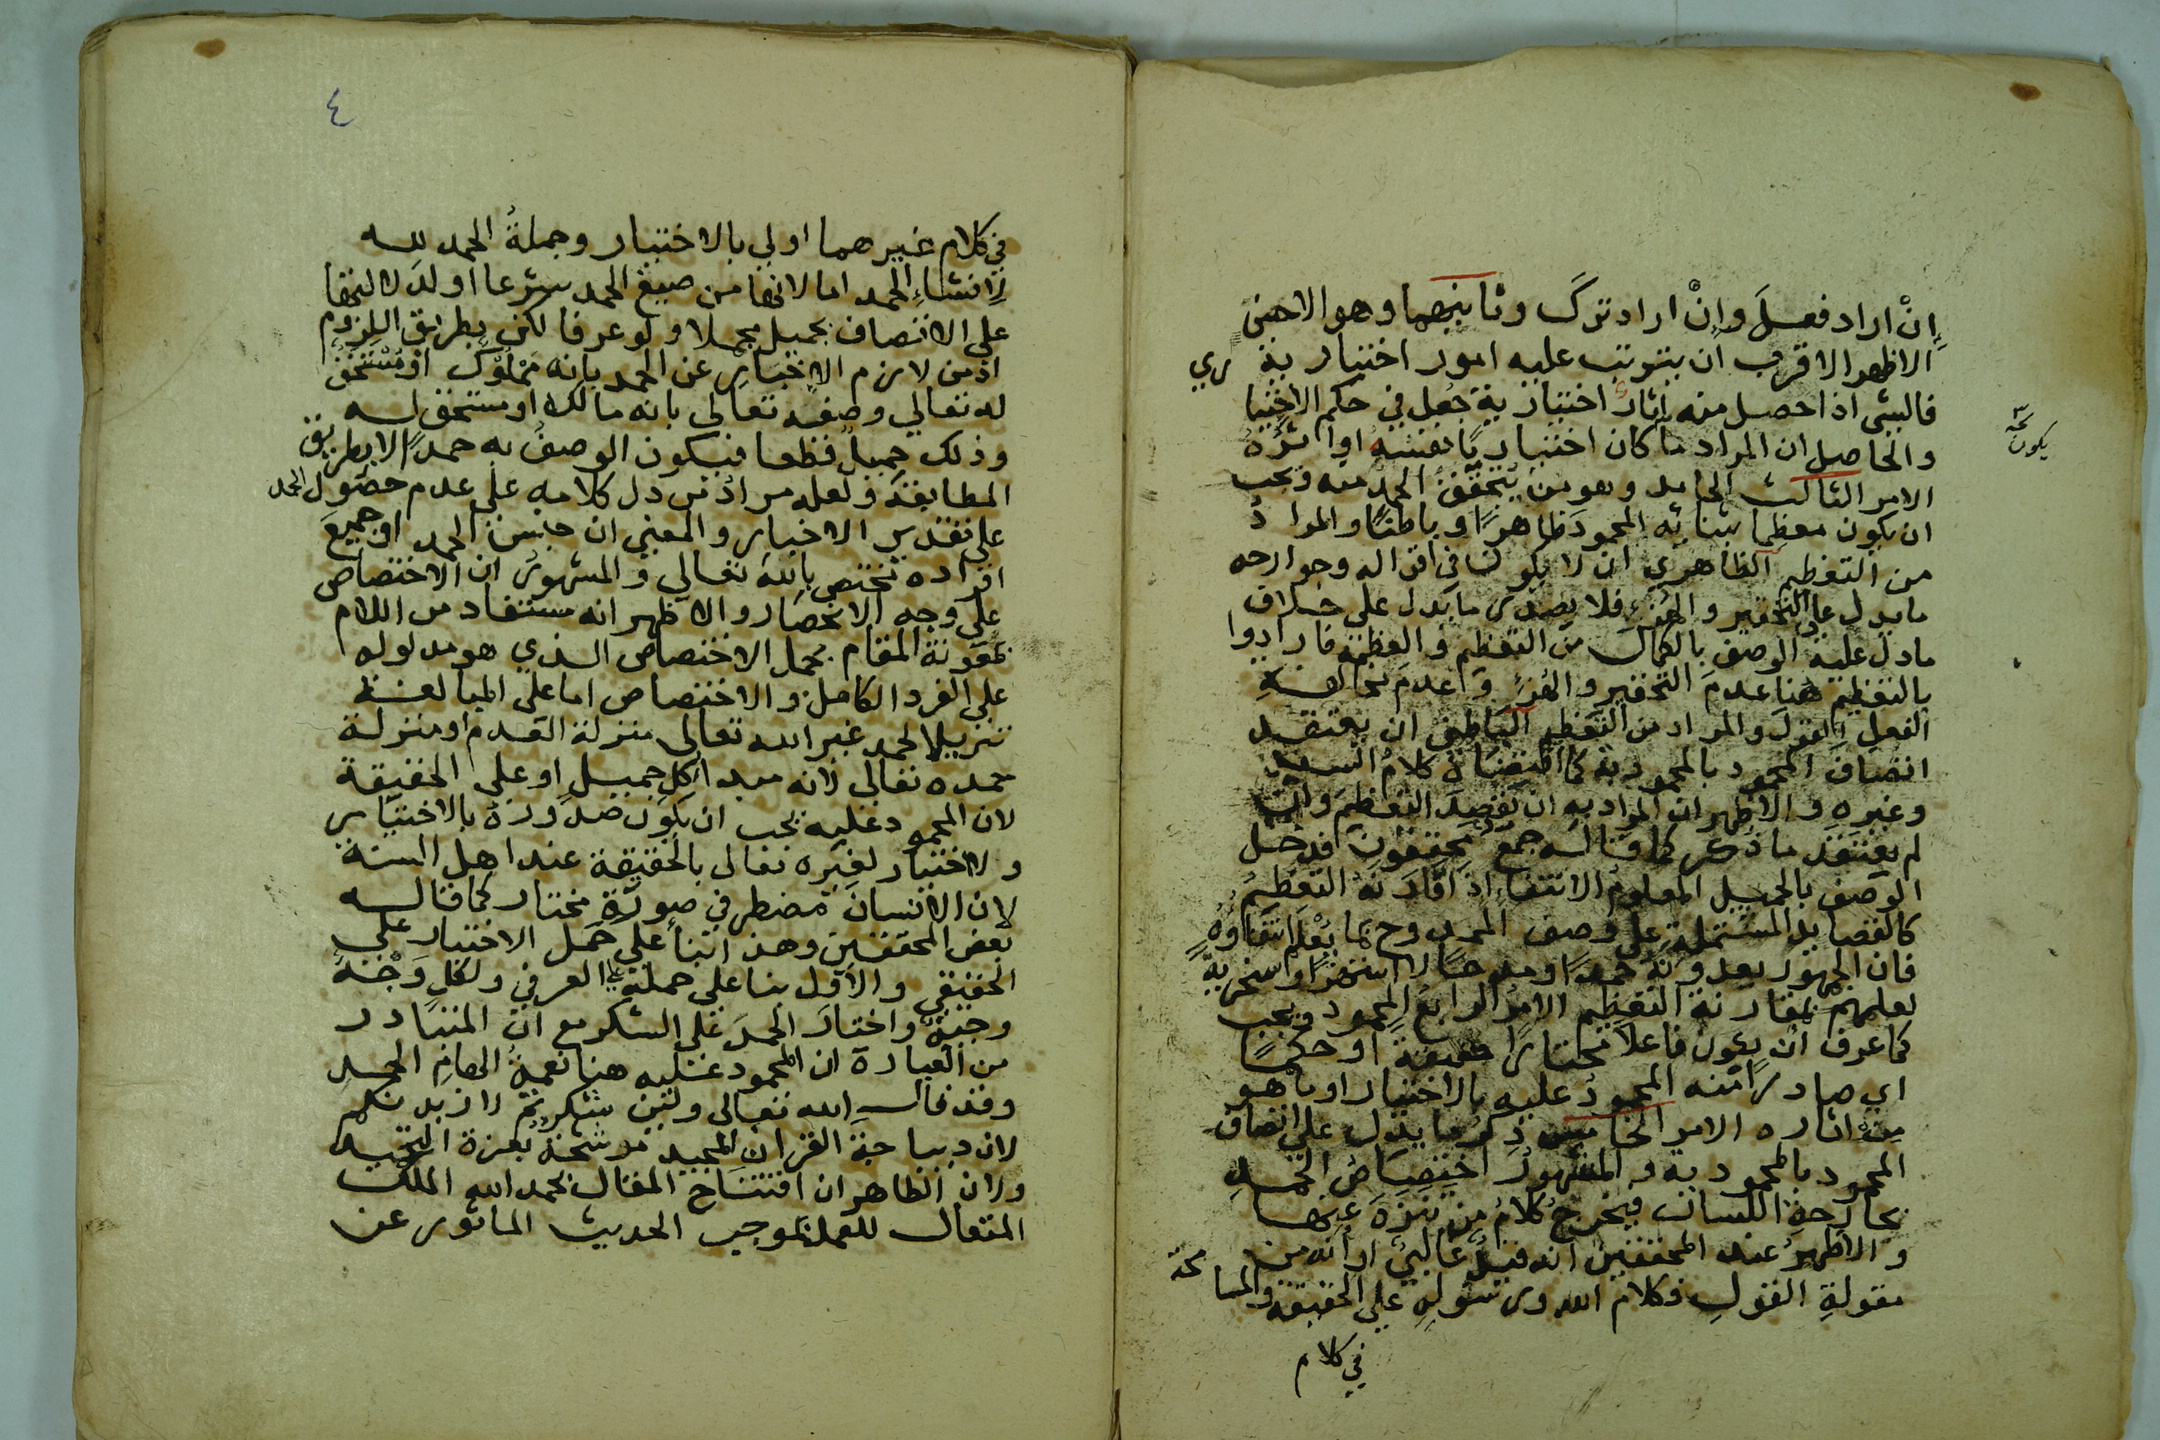 إِنْ اراد فعلَ وإنْ اراد تركَ وثانيهما وهو الاحنى
الاظهر الاقرب ان يترتب عليه امور اختيارية
فالشئ اذا حصل منه اثارٌ اختيارية جُعل في حكم الاختيا ري
والحاصل ان المراد ما كان اختياريًا بنفسه او اثرُهُ
الامر الثالث الحامد وهو من يتحققُ الحمدُ منه ويجب
ان يكون معظما بثنائه المحمودَ ظاهرًا وباطنًا والمرادُ
من التعظيم الظاهرى ان لا يكون في اقواله وجوارحه
ما يدل على التحقير والهزء فلا يصدر ما يدل على خلاف
ما دل عليه الوصف بالكمال من التعظيم والعظمة فارادوا
بالتعظيم هنا عدمَ التحقير والهزءِ وعدمَ مخالفةِ
الفعل القولَ والمراد من التعظيم الباطنى ان يعتقد
اتصافَ المحمود بالمحمود به كما اقتضاهُ كلامُ السيد
وغيره والاظهر ان المراد به ان يقصدَ التعظيمَ وان
لم يعتقد ما ذكر كما قاله جمعٌ محققون فدخل
الوصف بالجميل المعلومُ الانتفاءِ اذا قارنهُ التعظيمُ
كالقصايد المشتملة على وصف الممدوح بما يُعْلَم انتفاؤهُ
فان الجمهور يعدونه حمدًا ومدحًا لا استهزاءً او سخريةً
لعلمهم بمقارنة التعظيم الامر الرابع المحمود ويجب
كما عرف انْ يكون فاعلًا مختارًا حقيقة او حكمًا
اي صادرًا منه المحمودُ عليه بالاختيار او ما هو
من اثاره الامر الخامس ذِكرُ ما يدل على اتصاف
المحمود بالمحمود به والمشهورُ اختصاصُ الحمدِ
بجارحةِ اللسان فيخرج كلامُ من تنزه عنها
والاظهرُ عند المحققين انه قيدٌ غالبيٌ او انه من
مقولةِ القولِ فكلام الله ورسولهِ على الحقيقة والمسا محة
في كلام
يكون نسخة
٤
في كلام غيرهما اولي بالاختيار وجملةُ الحمد لله
لإنشاءِ الحمد اما لانها من صيغ الحمد شرعا او لدلالتها
على الاتصاف بجميل مجملا ولو عرفا لكن بطريق اللزوم
اذ من لازم الإخبارِ عن الحمد بانه مملوكٌ او مُسْتَحَقٌ
له تعالي وصفُه تعالى بانه مالك او مستحق له
وذلك جميلٌ قطعا فيكون الوصفُ به حمدًا لا بطريق
المطابقة ولعله مرادُ من دل كلامه على عدم حصول الحمد
على تقدير الاخبار والمعني ان جنسَ الحمد او جميعَ
افراده تختص بالله تعالي والمشهورُ ان الاختصاص
على وجه الانحصار والاظهر انه مستفاد من اللام
بمعونة المقام بحمل الاختصاص الذي هو مدلوله
على الفرد الكامل والاختصاص اما على المبالغة
تنزيلا لحمد غير الله تعالى منزلة العدم او منزلة
حمده تعالى لانه مبدا كل جميل او على الحقيقة
لان المحمود عليه يجب ان يكون صدورُهُ بالاختيار
ولا اختيار لغيره تعالى بالحقيقة عند اهل السنة
لان الانسان مضطر في صورة مختار كما قاله
بعض المحققين وهذا بناءً على حَمل الاختيار على
الحقيقي والاول بنا على حمله على العرفي ولكلٍ وَجْهَةٌ
وجيهةٌ واختارَ الحمدَ على الشكر مع ان المتبادر
من العبارة ان المحمود عليه هنا نعمةُ الهامِ الحمد
وقد قال الله تعالى ولئن شكرتم لازيدنكم
لان ديباجةَ القران المجيد مرشحةٌ بعزة التحميد
ولان الظاهر ان افتتاح المقال بحمد الله الملك
المتعال للعمل بموجب الحديث الماثور عن